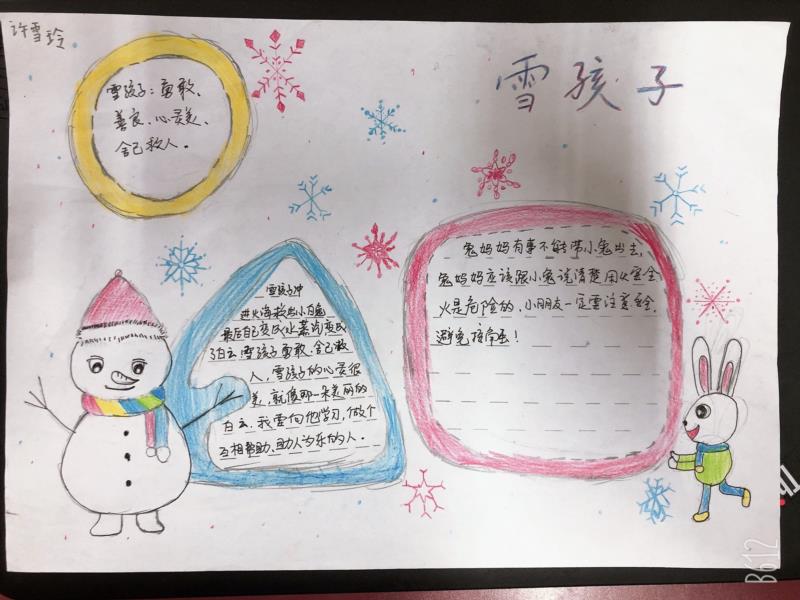 许雪玲
雪孩子
雪孩子:勇敢、
善良、心灵美、
舍己救人。
雪孩子冲
进火海救出小白兔
最后自己变成水蒸汽变成
了白云,雪孩子勇敢、舍己救
人,雪孩子的心灵很
美,就像那一朵美丽的
白云.我要向他学习,做个
互相帮助、助人为乐的人.
兔妈妈有事不能带小兔出去,
兔妈妈应该跟小兔说清楚用火安全
火是危险的,小朋友一定要注意安全,
避免接触!
B612